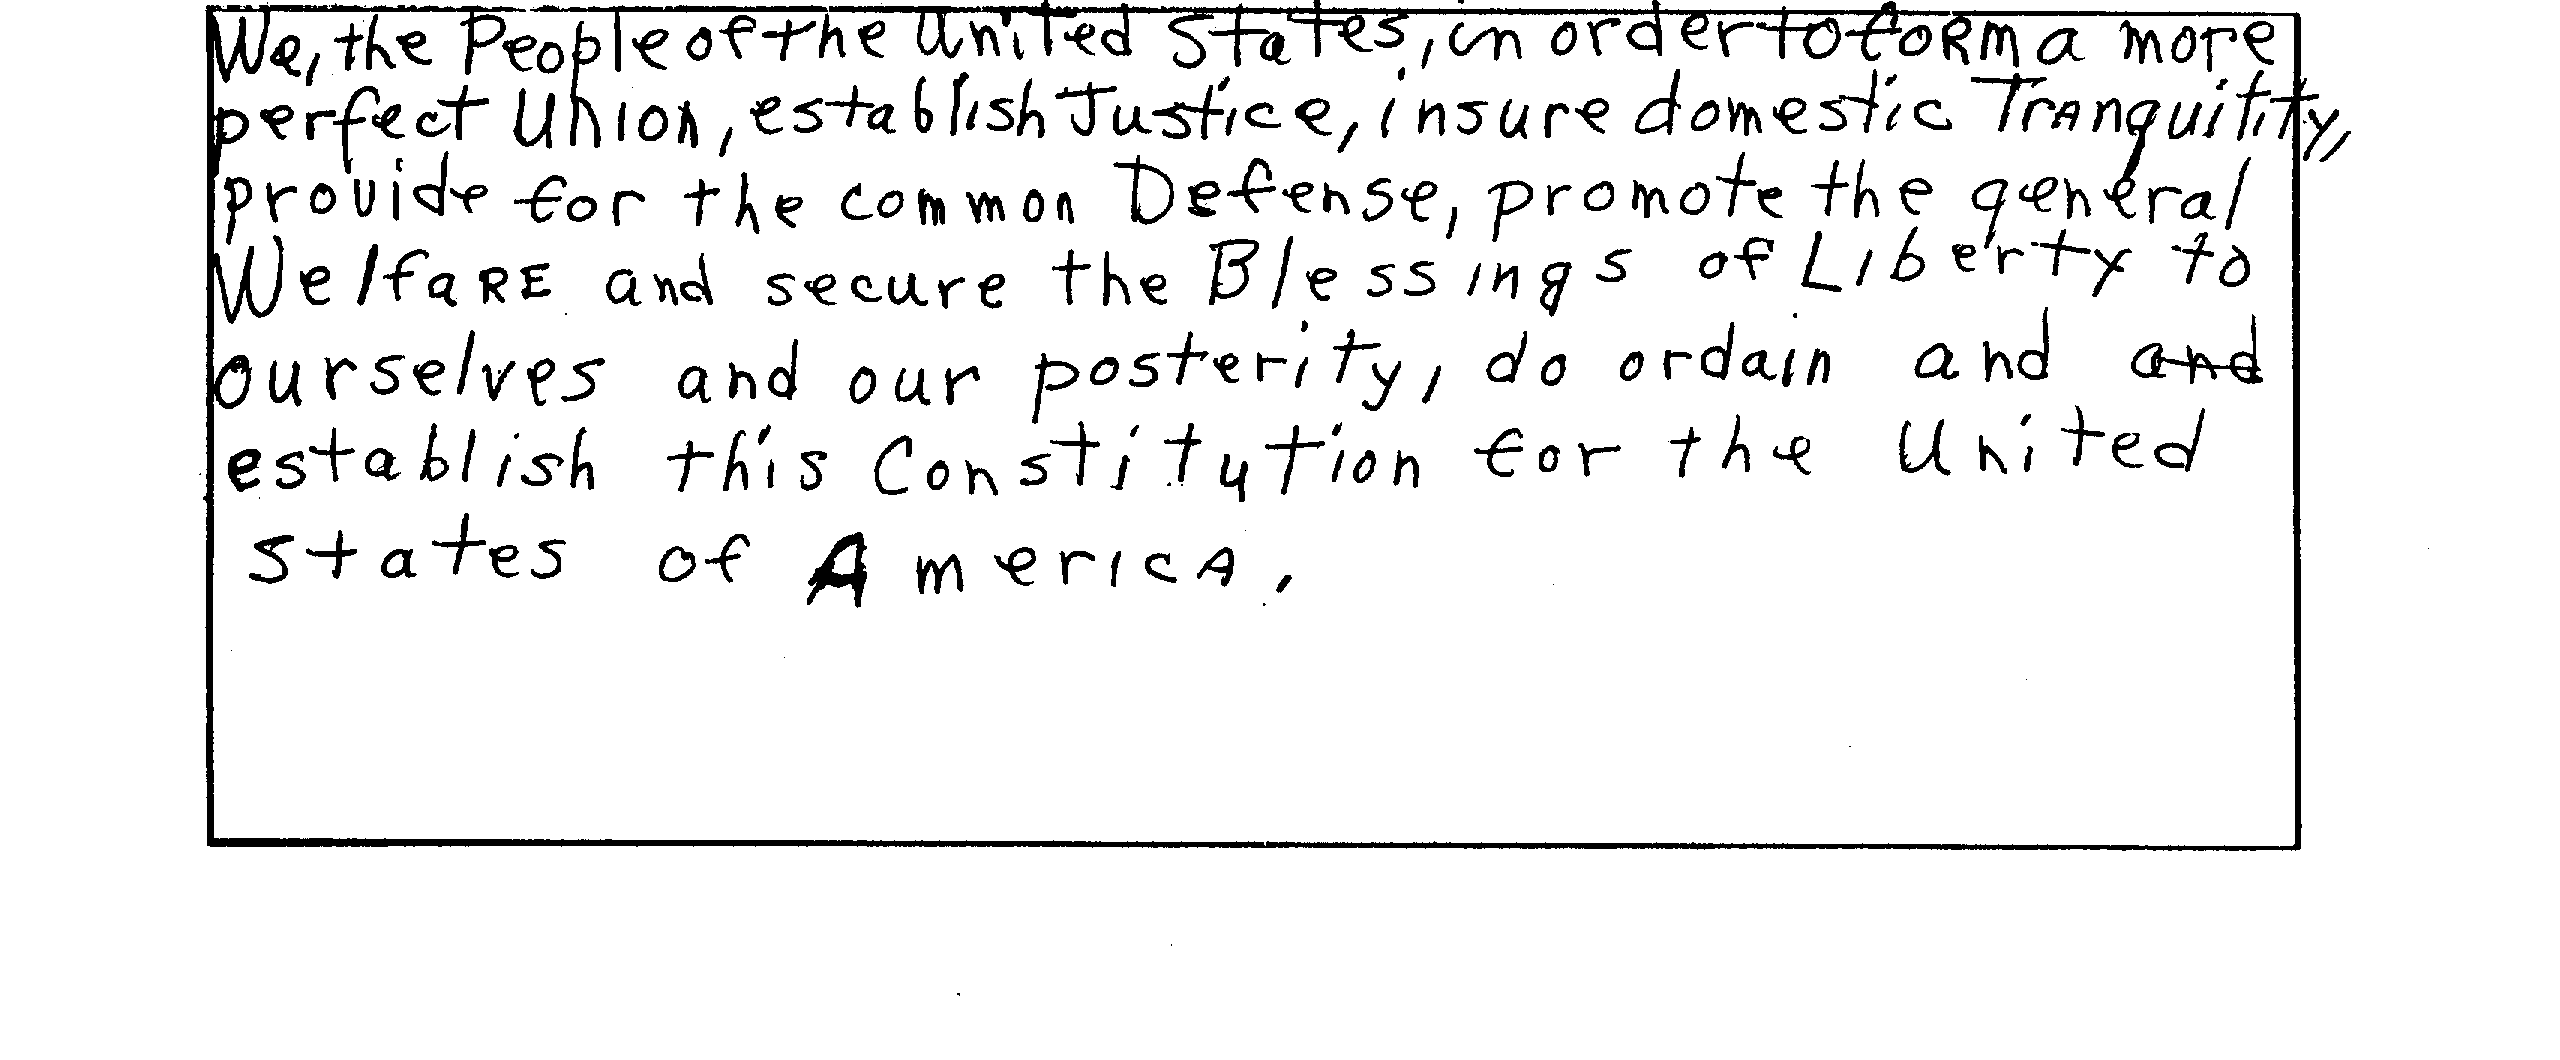 We, the People of the United States, in order to form a more
perfect Union, establish Justice, insure domestic Tranquitity,
provide for the common Defense, promote the general
Welfare and secure the Blessings of Liberty to
ourselves and our posterity, do ordain and and
establish this Constitution for the United
States of America.